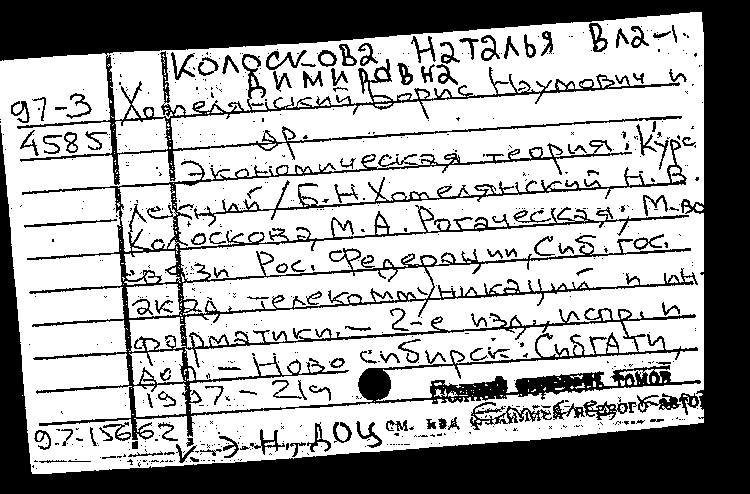 Колоскова, Наталья Вла-
димировна
97-3 Хотелянский, Борис Наумович и
4585 др.
Экономическая теория: Курс
лекций / Б.Н. Хотелянский, Н.В.
Колоскова, М.А. Рогаческая; М-во
связи Рос. Федерации, Сиб. гос.
акад. телекоммуникаций и ин-
форматики. - 2-е изд., испр. и
доп. - Новосибирск: СибГАТИ,
1997. - 219
томов
97-15662 см. над фамилией первого автора
Э. Н., ДОЦ